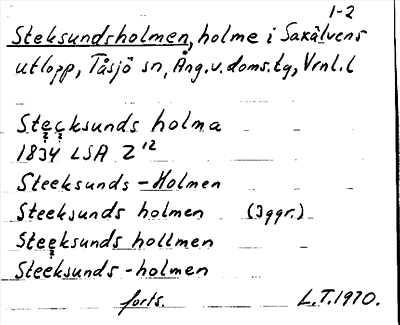 1-2
Steksundsholmen, holme i Saxälvens
utlopp, Tåsjö sn, Ång. v. doms. tg, Vrnl. l
Stecksunds holma
1834 LSA Z 12
Steeksunds - Holmen
Steeksunds holmen (3ggr.)
Steeksunds hollmen
Steeksunds - holmen
forts. L.T. 1970.